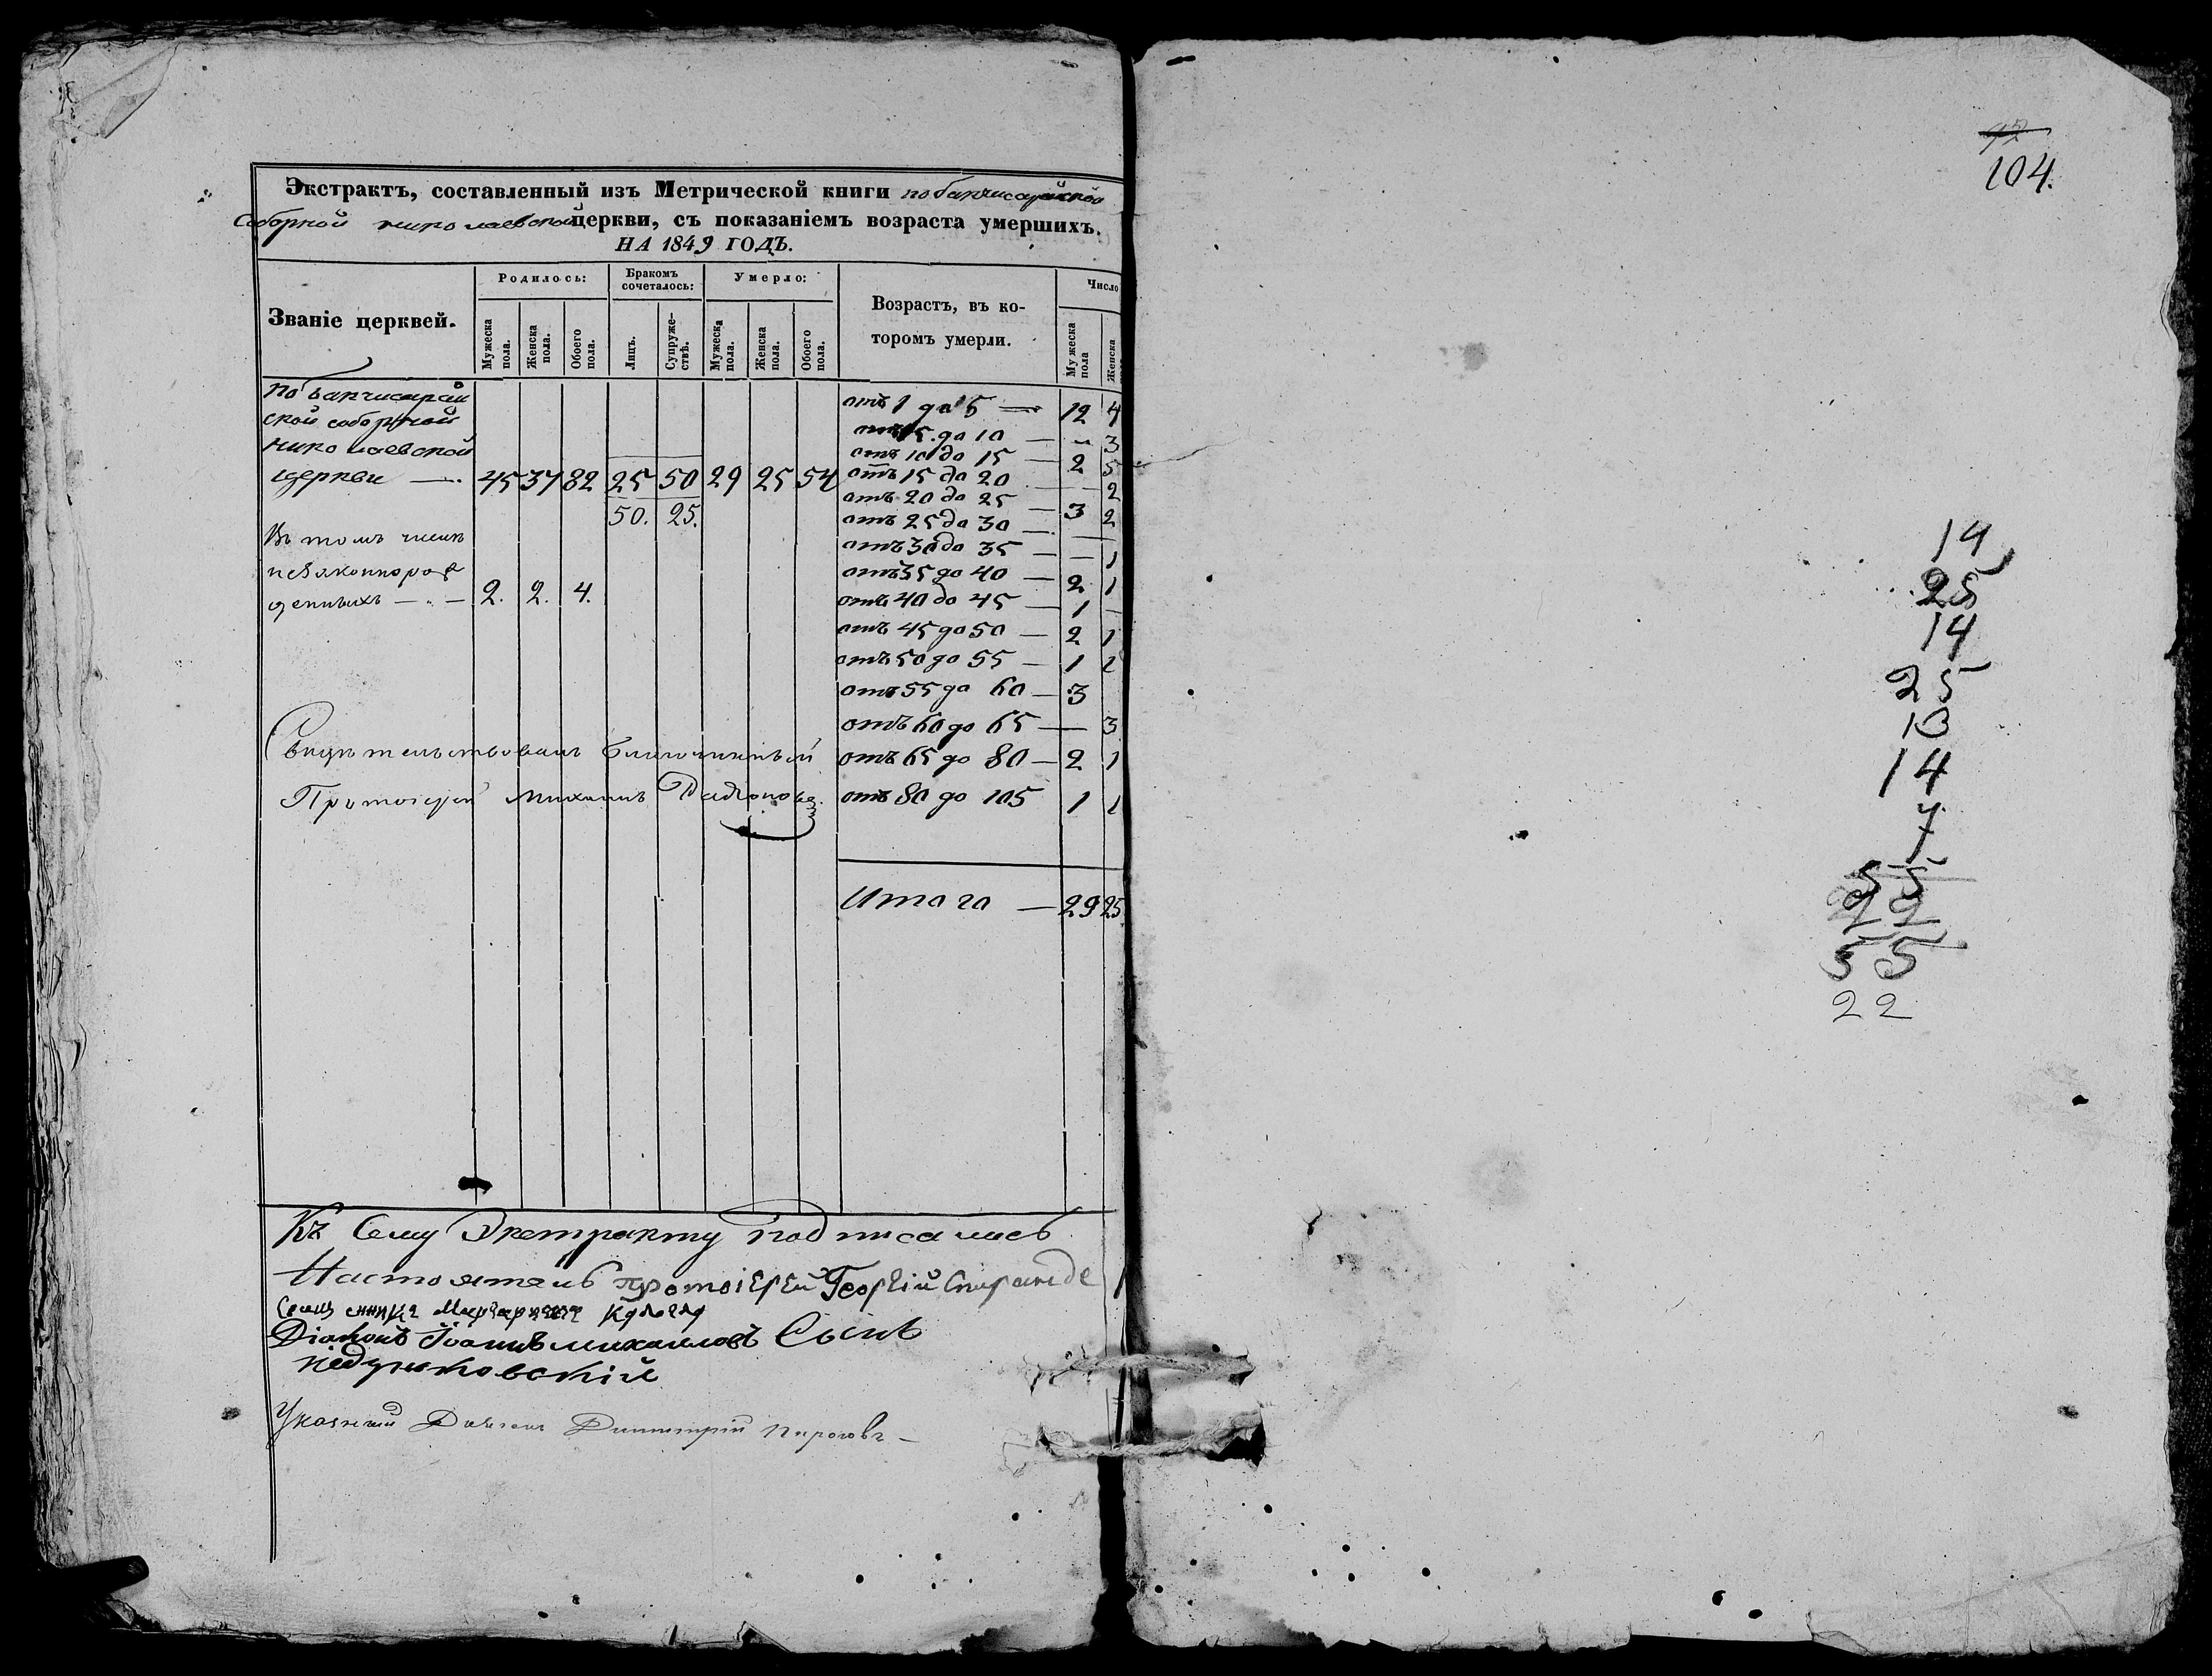 Экстрактъ, составленный изъ Метрической книги по бакчисарайской
соборной николаевской церкви, съ показаніемъ возраста умершихъ.
НА 1849 ГОДЪ.
Званіе церквей.
Родилось:
Бракомъ сочеталось:
Умерло:
Возрастъ, въ которомъ умерли.
Число
Мужеска пола.
Женска пола.
Обоего пола.
Лицъ.
Супружествъ.
Мужеска пола.
Женска пола.
Обоего пола.
Мужеска пола
Женска
По бакчисарай
ской соборной
николаевской
церкви — 45 37 82 25 50 29 25 54
50. 25.
Въ томъ числѣ
незаконнорож
денныхъ — 2. 2. 4.
отъ 1 до 5 — 12 4
отъ 5 до 10 — — 3
отъ 10 до 15 — 2 5
отъ 15 до 20 — 2
отъ 20 до 25 — 3 2
отъ 25 до 30 —
отъ 30 до 35 — — 1
отъ 35 до 40 — 2 1
отъ 40 до 45 — 1 —
отъ 45 до 50 — 2 1
отъ 50 до 55 — 1
отъ 55 до 60 — 3
отъ 60 до 65 — 3
отъ 65 до 80 — 2 1
отъ 80 до 105 1
Итого — 29 25
Свидѣтельствовалъ Благочинный
Протоіерей Михаилъ Родіоновъ.
Къ Сему Экстракту подписались
Настоятель протоіерей Георгій Спиранде
Діаконъ Іоаннъ михаиловъ Сынъ
недзыковскій
Указный Дьячекъ Димитрій Пироговъ —
104.
14
25
14
25
13
14
7
55
22
55
22